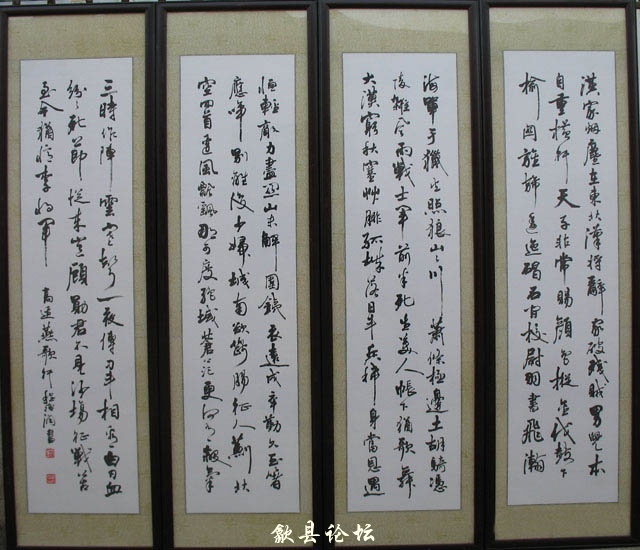 漢家烟塵在東北漢將辭家破殘賊男兒本
自重横行天子非常賜顔色摐金伐鼓下
榆関旌旆逶迤碣石间校尉羽書飛瀚
海單于獵火照狼山々川蕭條極邊土胡騎憑
陵雜風雨戰士軍前半死生美人帳下猶歌舞
大漠窮秋塞草腓孤城落日鬥兵稀身當恩遇
恒輕敵力盡関山未解圍鐵衣遠戍辛勤久玉箸
應啼別離後少婦城南欲斷腸征人薊北
空回首邊風飄飄那可度絕域蒼茫更何有殺氣
三時作陣雲寒聲一夜傳刁斗相看白刃血
紛々死節從來豈顧勳君不見沙場征戰苦
至今猶憶李將軍 高適燕歌行 書
歙县论坛